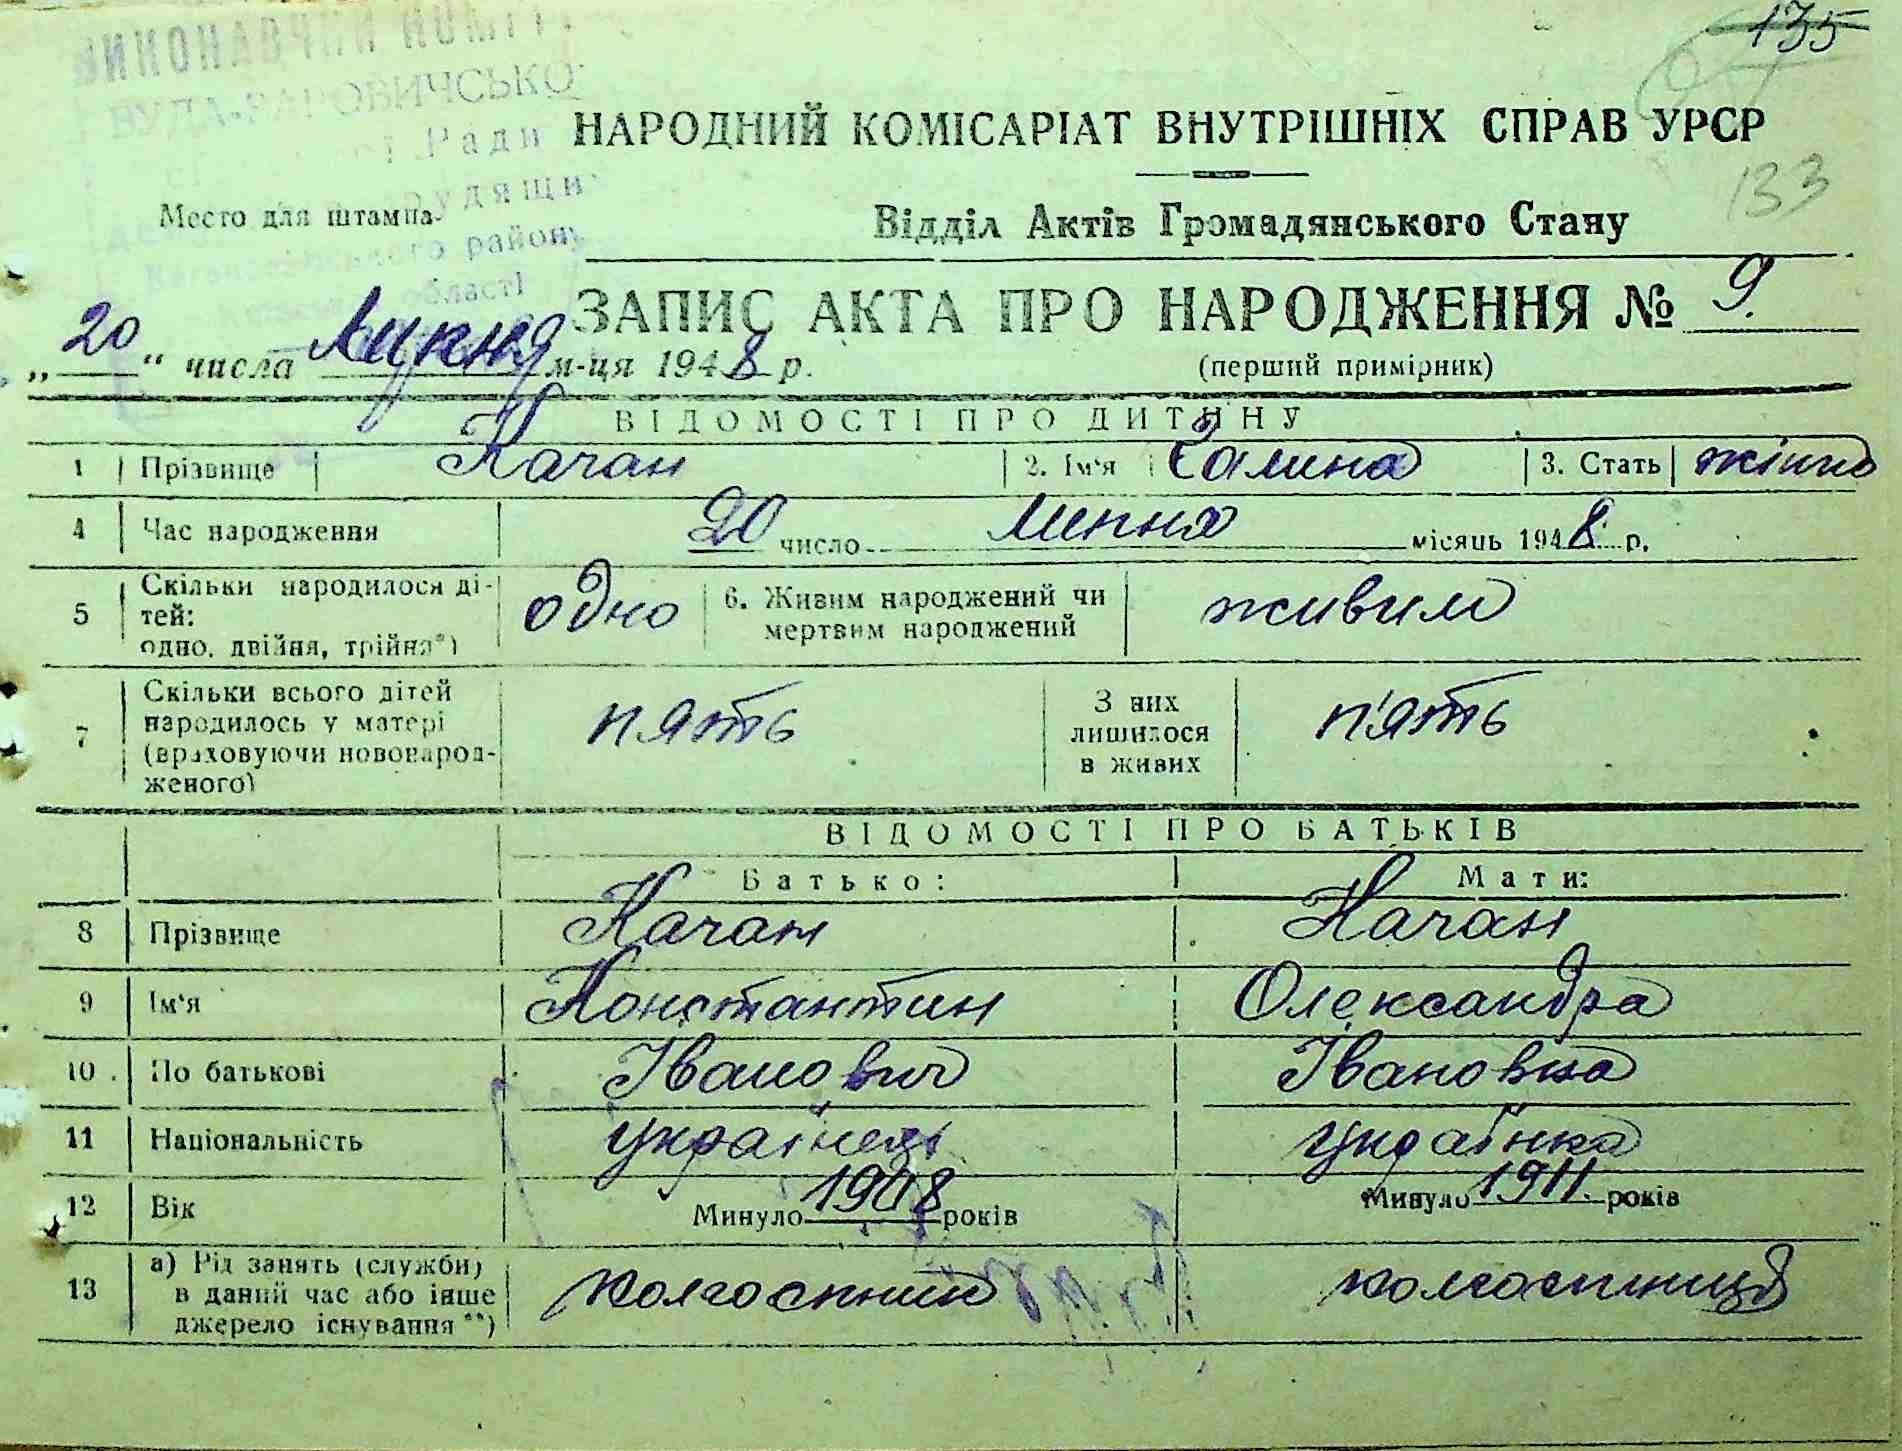 135
ВИКОНАВЧИЙ КОМІТ
БУДА-ВАРОВИЧСЬКО
Ради
НАРОДНИЙ КОМІСАРІАТ ВНУТРІШНІХ СПРАВ УРСР
133
Место для штампа
Відділ Актів Громадянського Стану
району
області
ЗАПИС АКТА ПРО НАРОДЖЕННЯ № 9.
„20“ числа Липня м-ця 1948 р.
(перший примірник)
ВІДОМОСТІ ПРО ДИТИНУ
1 Прізвище Качан 2. Ім'я Галина 3. Стать жіноч
4 Час народження 20 число Липня місяць 1948 р.
5 Скільки народилося ді-
тей:
одно, двійня, трійня*)
одно
6. Живим народжений чи
мертвим народжений
живим
7 Скільки всього дітей
народилось у матері
(враховуючи новонарод-
женого)
пять
З них
лишилося
в живих
п'ять
ВІДОМОСТІ ПРО БАТЬКІВ
Батько: Мати:
8 Прізвище Качан Качан
9 Ім'я Константин Олександра
10 По батькові Іванович Івановна
11 Національність українець українка
12 Вік Минуло 1908 років Минуло 1911. років
13 а) Рід занять (служби)
в даний час або інше
джерело існування**)
колгоспник колгоспниця